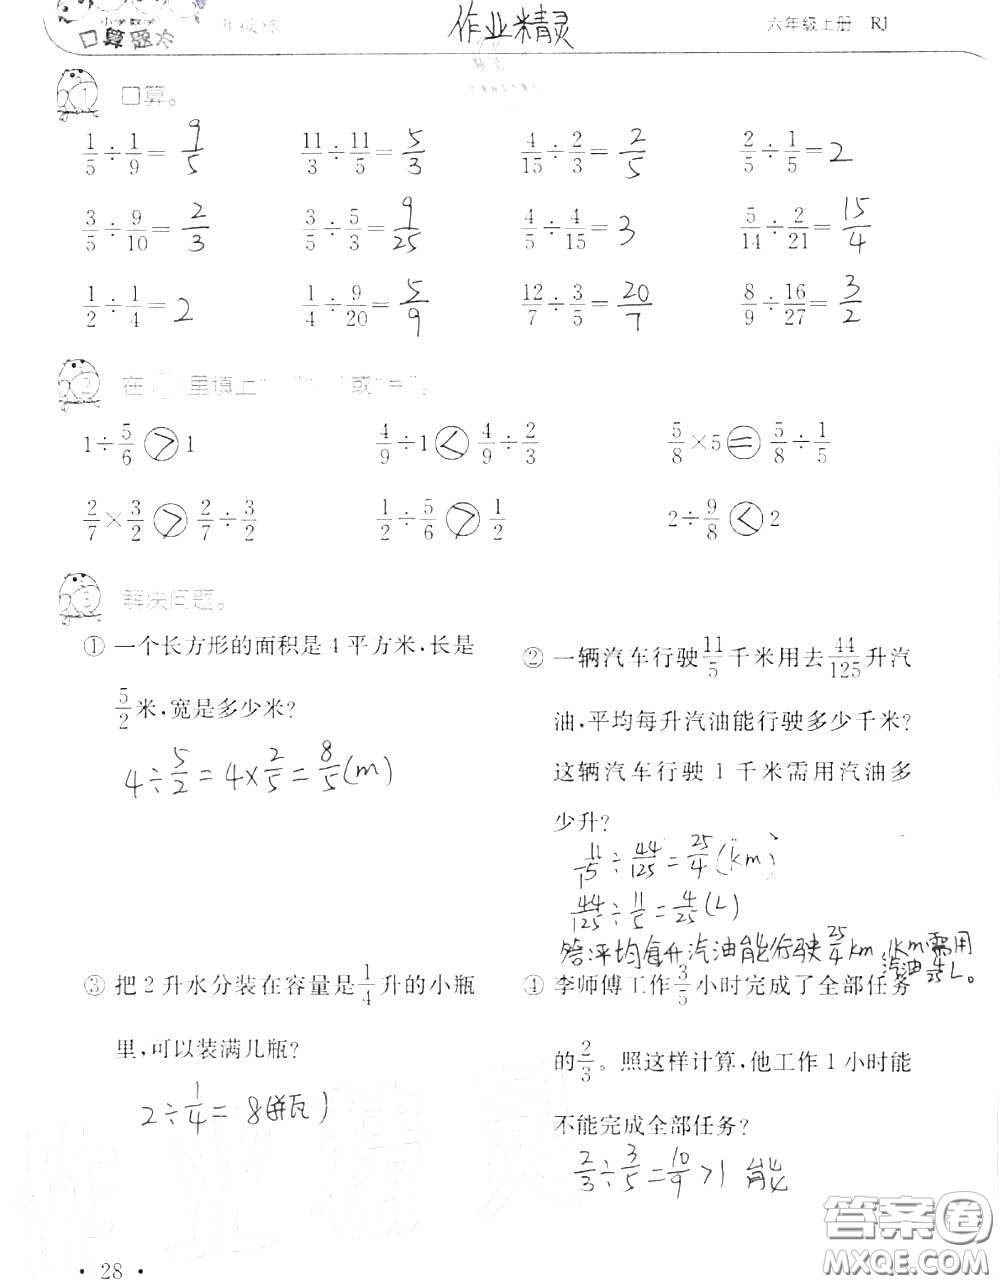 小学数学
口算题卡
作业精灵
六年级上册 RJ
① 口算。
1/5÷1/9= 9/5 11/3÷11/5= 5/3 4/15÷2/3= 2/5 2/5÷1/5= 2
3/5÷9/10= 2/3 3/5÷5/3= 9/25 4/5÷4/15= 3 5/14÷2/21= 15/4
1/2÷1/4= 2 1/4÷9/20= 5/9 12/7÷3/5= 20/7 8/9÷16/27= 3/2
② 在 里填上“ ”“ ”或“=”。
1÷5/6 > 1 4/9÷1 < 4/9÷2/3 5/8×5 = 5/8÷1/5
2/7×3/2 > 2/7÷3/2 1/2÷5/6 > 1/2 2÷9/8 < 2
③ 解决问题。
① 一个长方形的面积是4平方米,长是
5/2米,宽是多少米?
4÷5/2=4×2/5=8/5(m)
② 一辆汽车行驶11/5千米用去44/125升汽
油,平均每升汽油能行驶多少千米?
这辆汽车行驶1千米需用汽油多
少升?
11/15÷44/125=25/4(km)
44/125÷11/5=4/25(L)
答:平均每升汽油能行驶25/4km,1km需用
汽油4/25L。
③ 把2升水分装在容量是1/4升的小瓶
里,可以装满几瓶?
2÷1/4=8(瓶)
④ 李师傅工作3/5小时完成了全部任务
的2/3。照这样计算,他工作1小时能
不能完成全部任务?
2/3÷3/5=10/9>1 能
• 28 •
答案圈
MXQE.COM